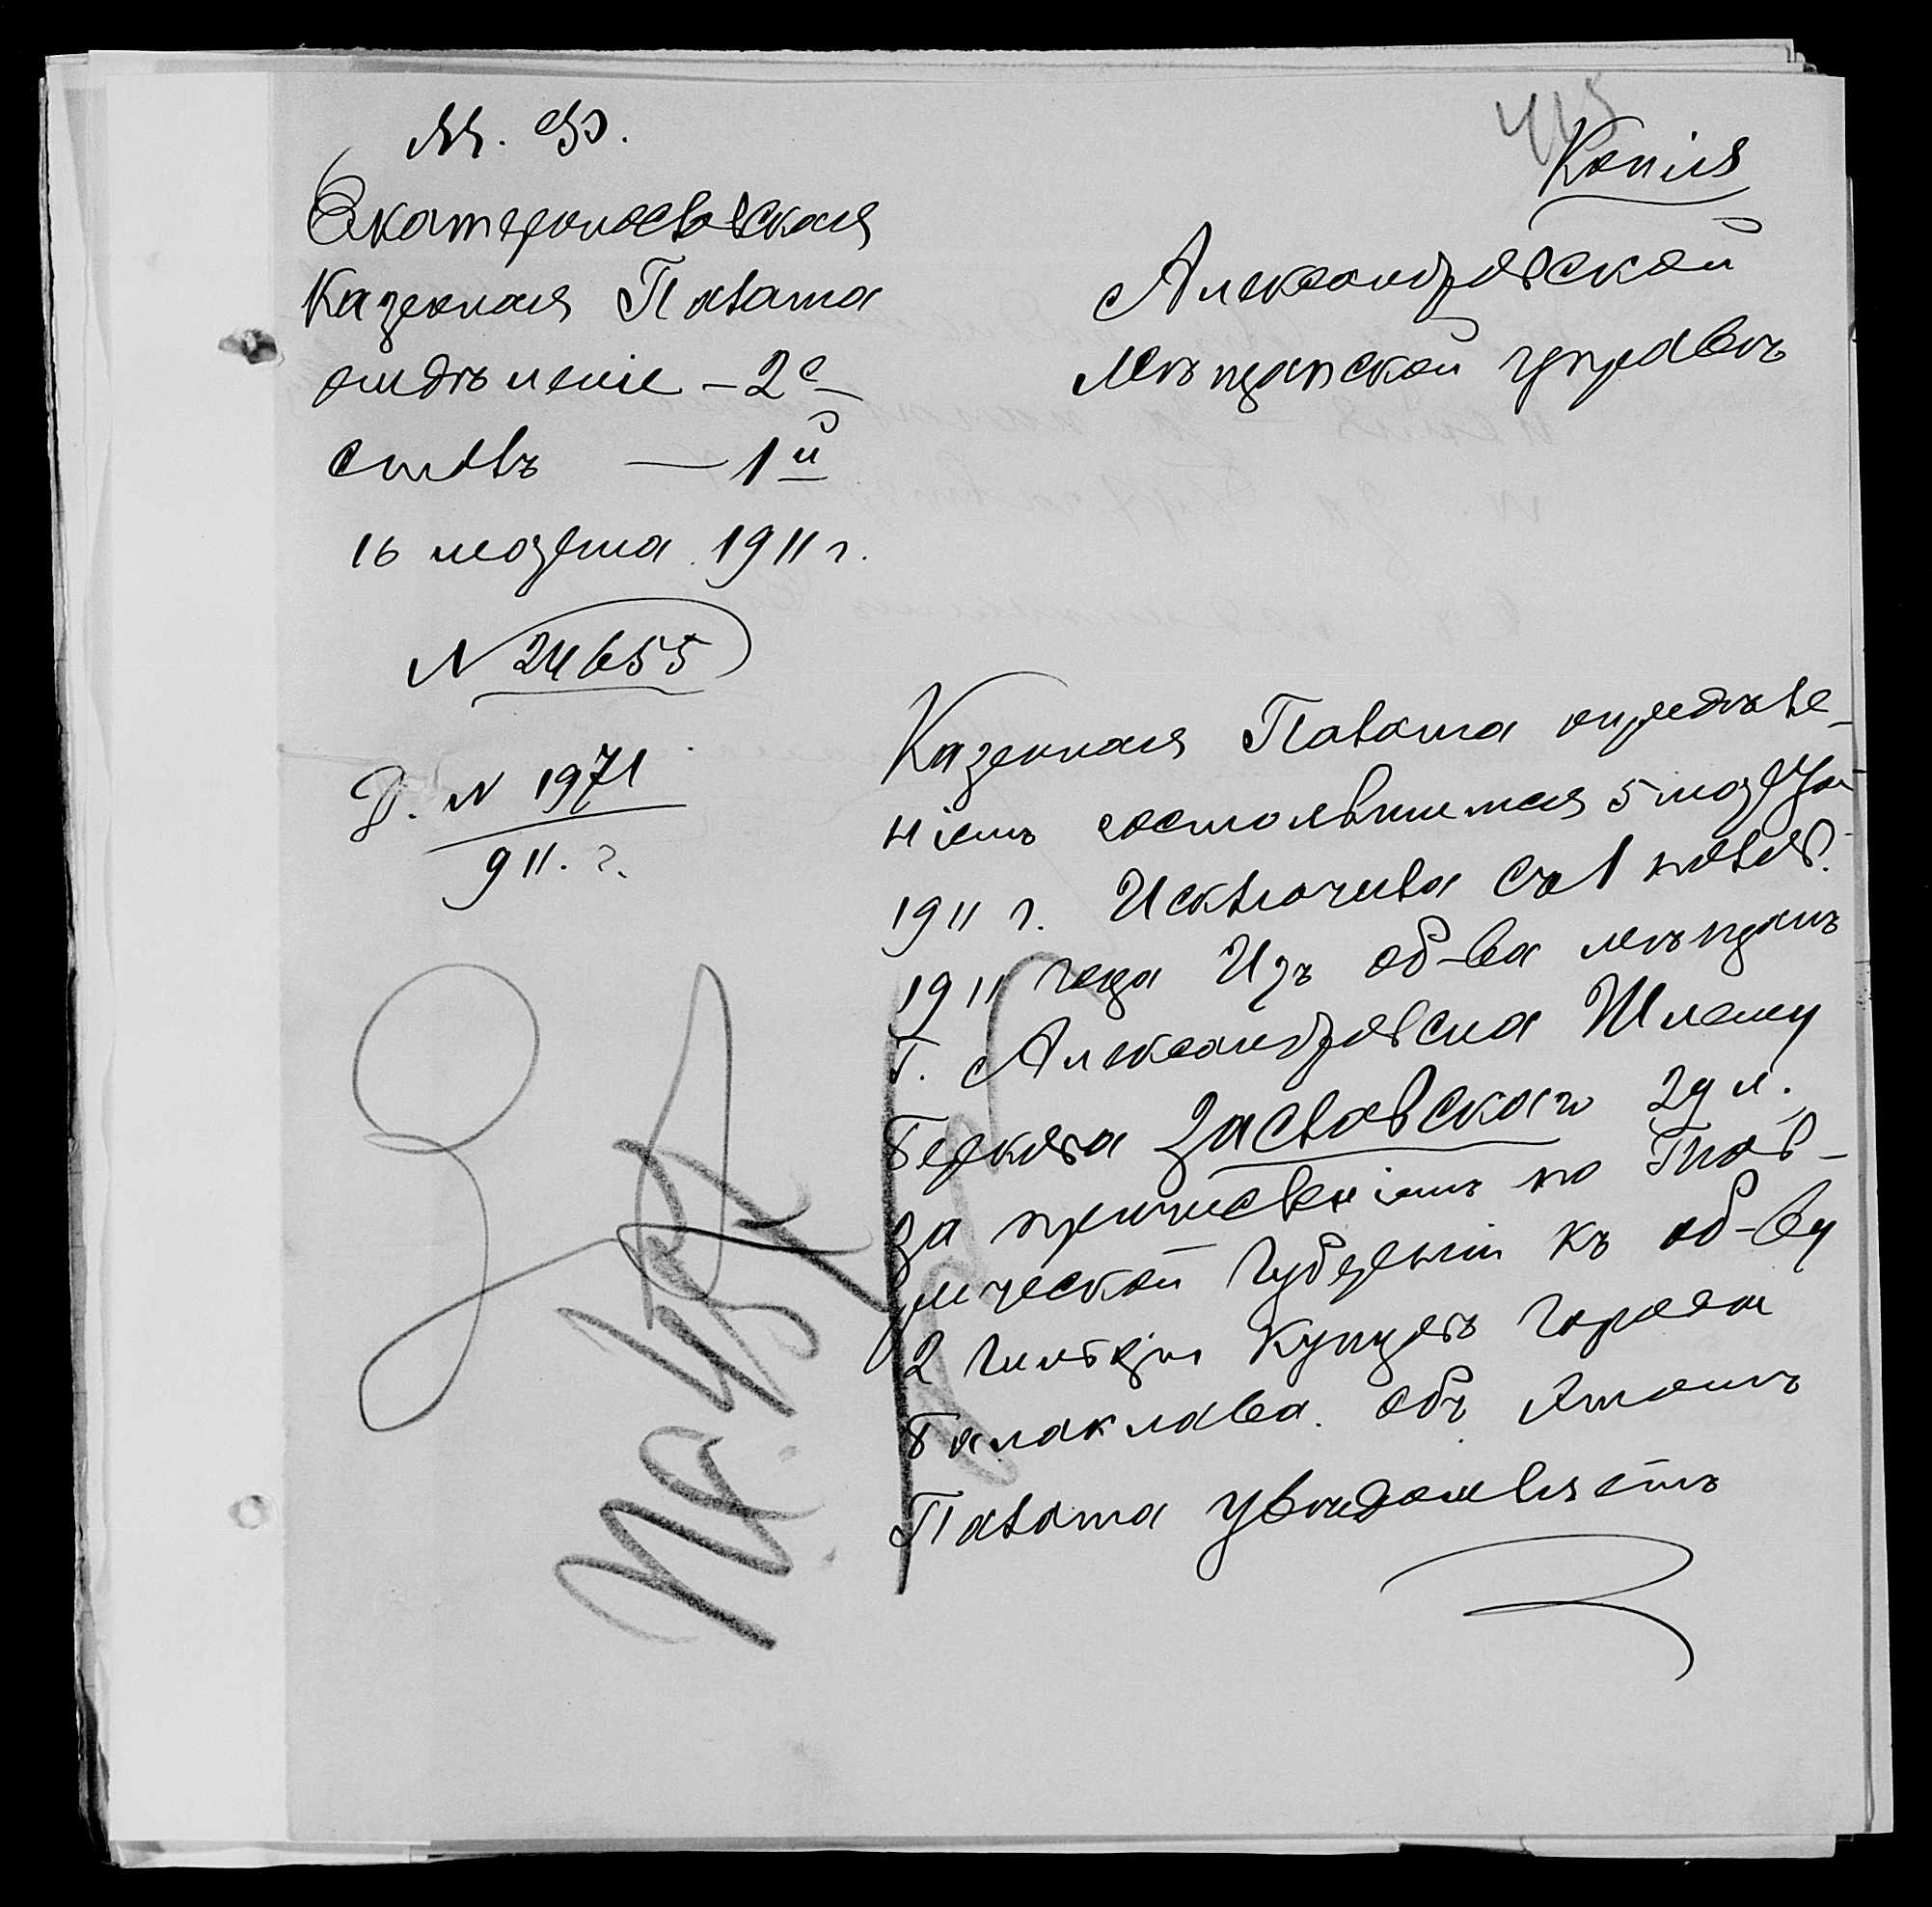 М. Ф.
Екатеринославская
Казенная Палата
отдѣленіе – 2е
столъ — 1й
16 марта 1911 г.
N 24655
Д. N 1971
911. г.
Копія
Александровской
Мѣщанской управѣ
Казенная Палата опредѣле-
ніемъ состоявшимся 5 марта
1911 г. Исключила съ 1 полов.
1911 года Изъ об-ва мѣщанъ
г. Александровска Шлему
Беркова Заславскаго 29 л.
за причисленіемъ по Тав-
рической Губерніи къ об-ву
2 гильдіи Купцовъ города
Балаклава. Объ этомъ
Палата увѣдомляетъ